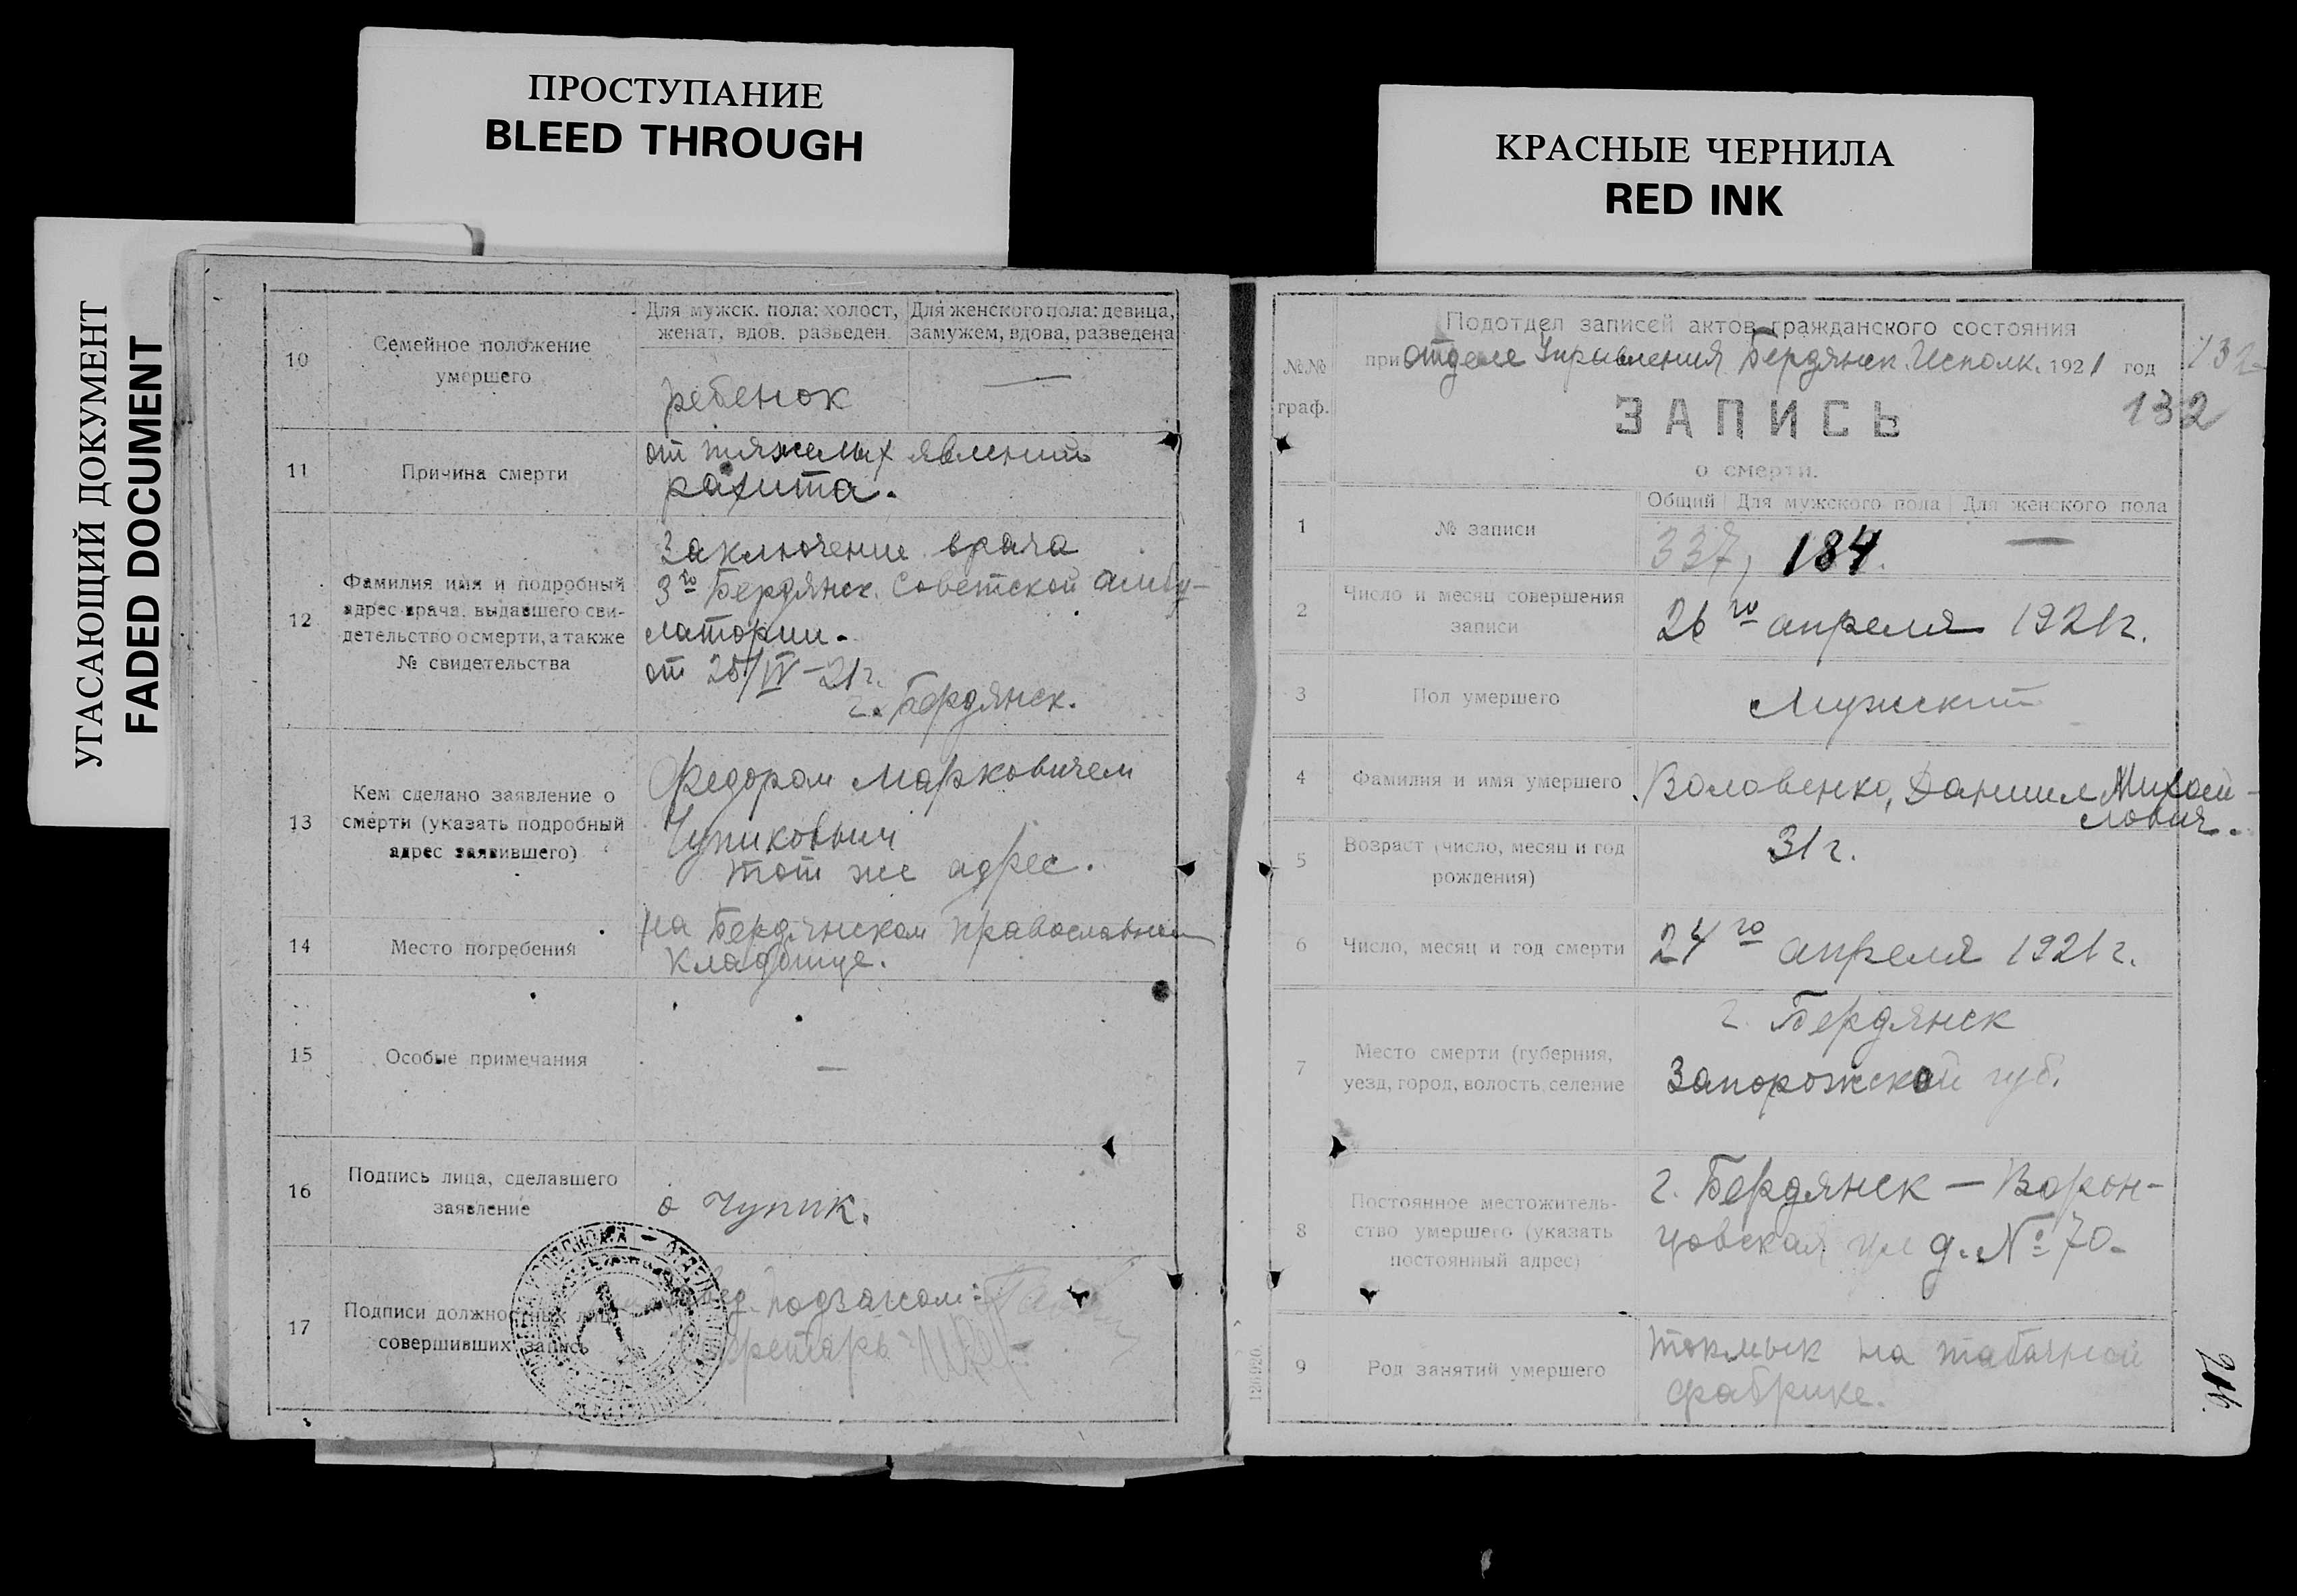 ПРОСТУПАНИЕ
BLEED THROUGH
КРАСНЫЕ ЧЕРНИЛА
RED INK
УГАСАЮЩИЙ ДОКУМЕНТ
FADED DOCUMENT
10
Семейное положение
умершего
Для мужск. пола: холост,
женат, вдов. разведен.
Для женского пола: девица,
замужем, вдова, разведена
ребенок
—
11
Причина смерти
от тяжелых явлений
рахита.
12
Фамилия имя и подробный
адрес врача, выдавшего сви-
детельство о смерти, а также
№ свидетельства
Заключение врача
3го Бердянск. Советской амбу-
латории.
от 25/IV-21г.
г. Бердянск.
13
Кем сделано заявление о
смерти (указать подробный
адрес заявившего)
Федором Марковичем
Чупиковым
тот же адрес.
14
Место погребения
на Бердянском православном
кладбище.
15
Особые примечания
—
16
Подпись лица, сделавшего
заявление
Чупик.
17
Подписи должностных лиц
совершивших запись
подзагсом:
Секретарь
№№
граф.
Подотдел записей актов гражданского состояния
при отделе Управления Бердянск. Исполк. 1921 год
132
132
ЗАПИСЬ
о смерти.
1
№ записи
Общий
Для мужского пола
Для женского пола
337,
184.
—
2
Число и месяц совершения
записи
26го апреля 1921г.
3
Пол умершего
Мужский
4
Фамилия и имя умершего
Воловенко, Даниил Михай-
лович.
5
Возраст (число, месяц и год
рождения)
31г.
6
Число, месяц и год смерти
24го апреля 1921г.
7
Место смерти (губерния,
уезд, город, волость, селение
г. Бердянск
Запорожской губ.
8
Постоянное местожитель-
ство умершего (указать
постоянный адрес)
г. Бердянск — Ворон-
цовская ул д. № 70.
9
Род занятий умершего
на табачной
фабрике.